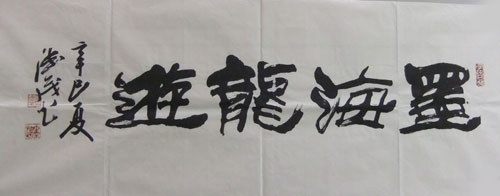 墨海龍遊
辛巳夏